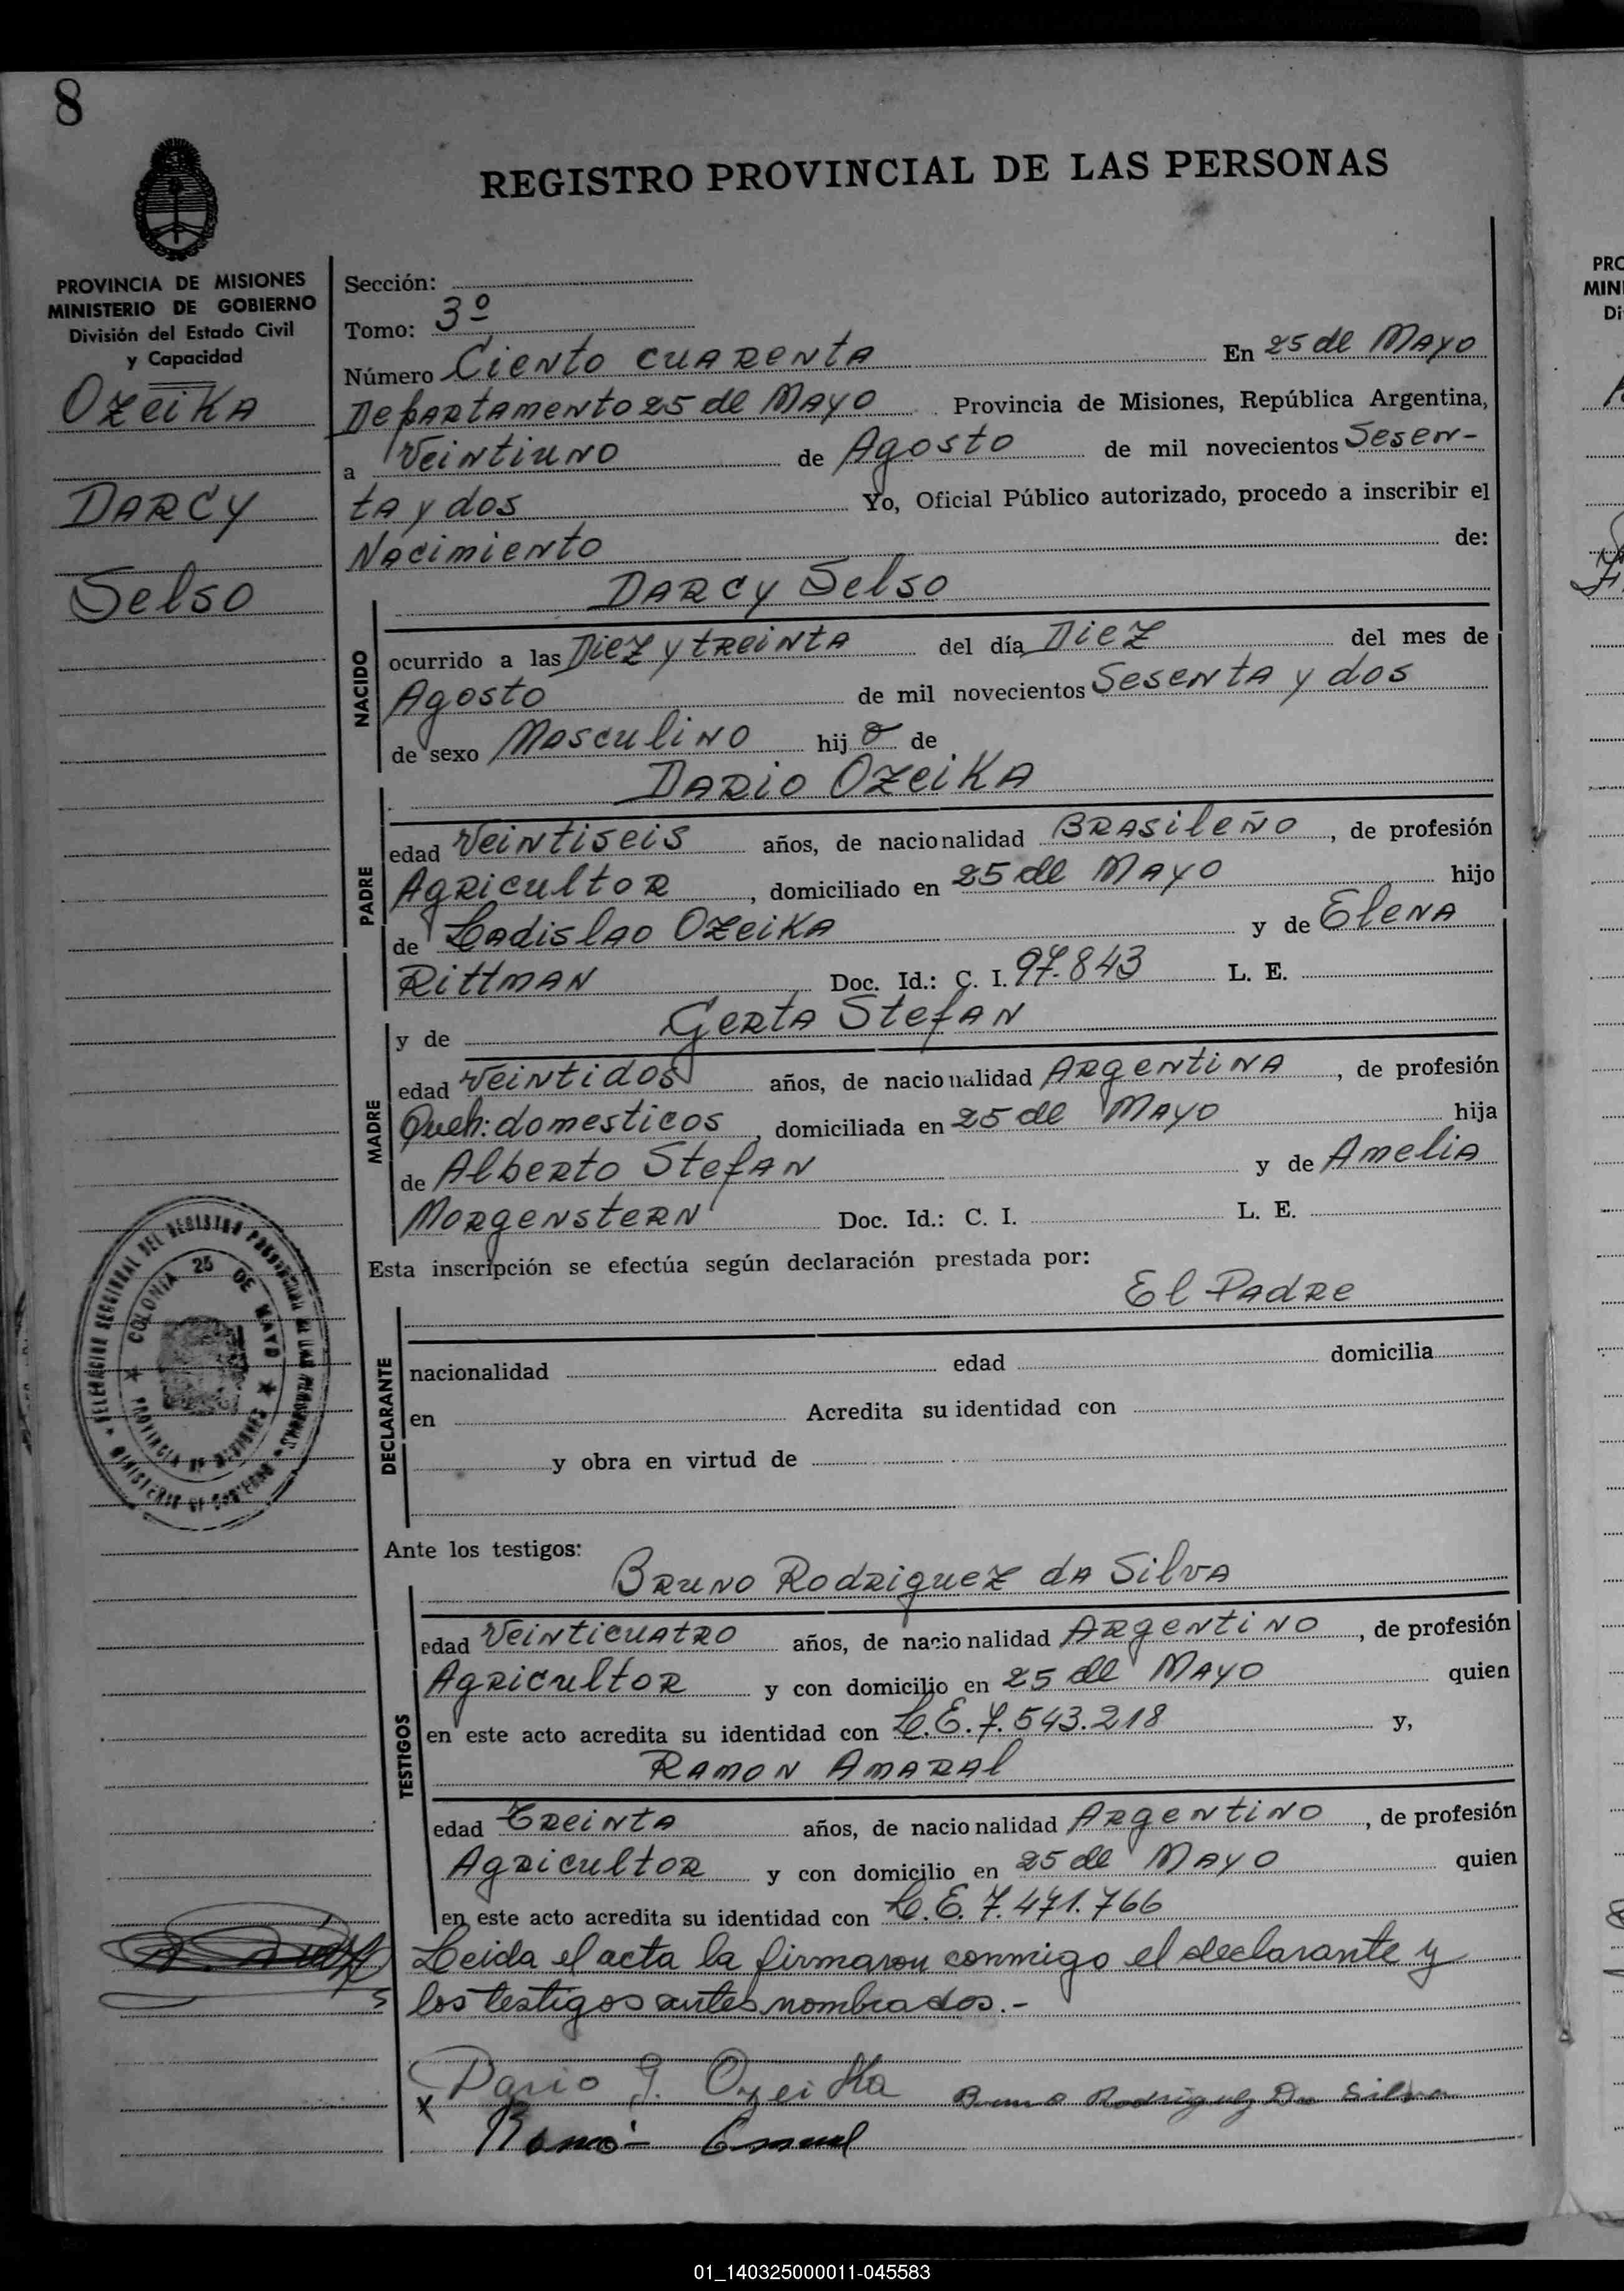 8
REGISTRO PROVINCIAL DE LAS PERSONAS
PROVINCIA DE MISIONES
MINISTERIO DE GOBIERNO
División del Estado Civil
y Capacidad
Ozeika
Darcy
Selso
Sección:
Tomo: 3º
Número Ciento cuarenta En 25 de Mayo
Departamento 25 de Mayo Provincia de Misiones, República Argentina,
a Veintiuno de Agosto de mil novecientos Sesen-
ta y dos Yo, Oficial Público autorizado, procedo a inscribir el
Nacimiento de:
Darcy Selso
NACIDO
ocurrido a las Diez y treinta del día Diez del mes de
Agosto de mil novecientos Sesenta y dos
de sexo Masculino hijo de
Dario Ozeika
PADRE
edad Veintiseis años, de nacionalidad Brasileño, de profesión
Agricultor, domiciliado en 25 de Mayo hijo
de Ladislao Ozeika y de Elena
Rittman Doc. Id.: C. I. 97.843 L. E.
y de Gerta Stefan
MADRE
edad Veintidos años, de nacionalidad Argentina, de profesión
Queh: domesticos, domiciliada en 25 de Mayo hija
de Alberto Stefan y de Amelia
Morgenstern Doc. Id.: C. I. L. E.
Esta inscripción se efectúa según declaración prestada por:
El Padre
DECLARANTE
nacionalidad edad domicilia
en Acredita su identidad con
y obra en virtud de
DELEGACION SECCIONAL DEL REGISTRO PROVINCIAL DE LAS PERSONAS
MINISTERIO DE GOBIERNO
COLONIA 25 DE MAYO
PROVINCIA DE MISIONES
Ante los testigos:
Bruno Rodriguez da Silva
TESTIGOS
edad Veinticuatro años, de nacionalidad Argentino, de profesión
Agricultor y con domicilio en 25 de Mayo quien
en este acto acredita su identidad con L.E. 7.543.218 y,
Ramon Amaral
edad Treinta años, de nacionalidad Argentino, de profesión
Agricultor y con domicilio en 25 de Mayo quien
en este acto acredita su identidad con L.E. 7.471.766
Leida el acta la firmaron conmigo el declarante y
los testigos antes nombrados.-
x Dario J. Ozeika Bruno Rodriguez Da Silva
Ramón Amaral
PRO
MIN
Di
01_140325000011-045583